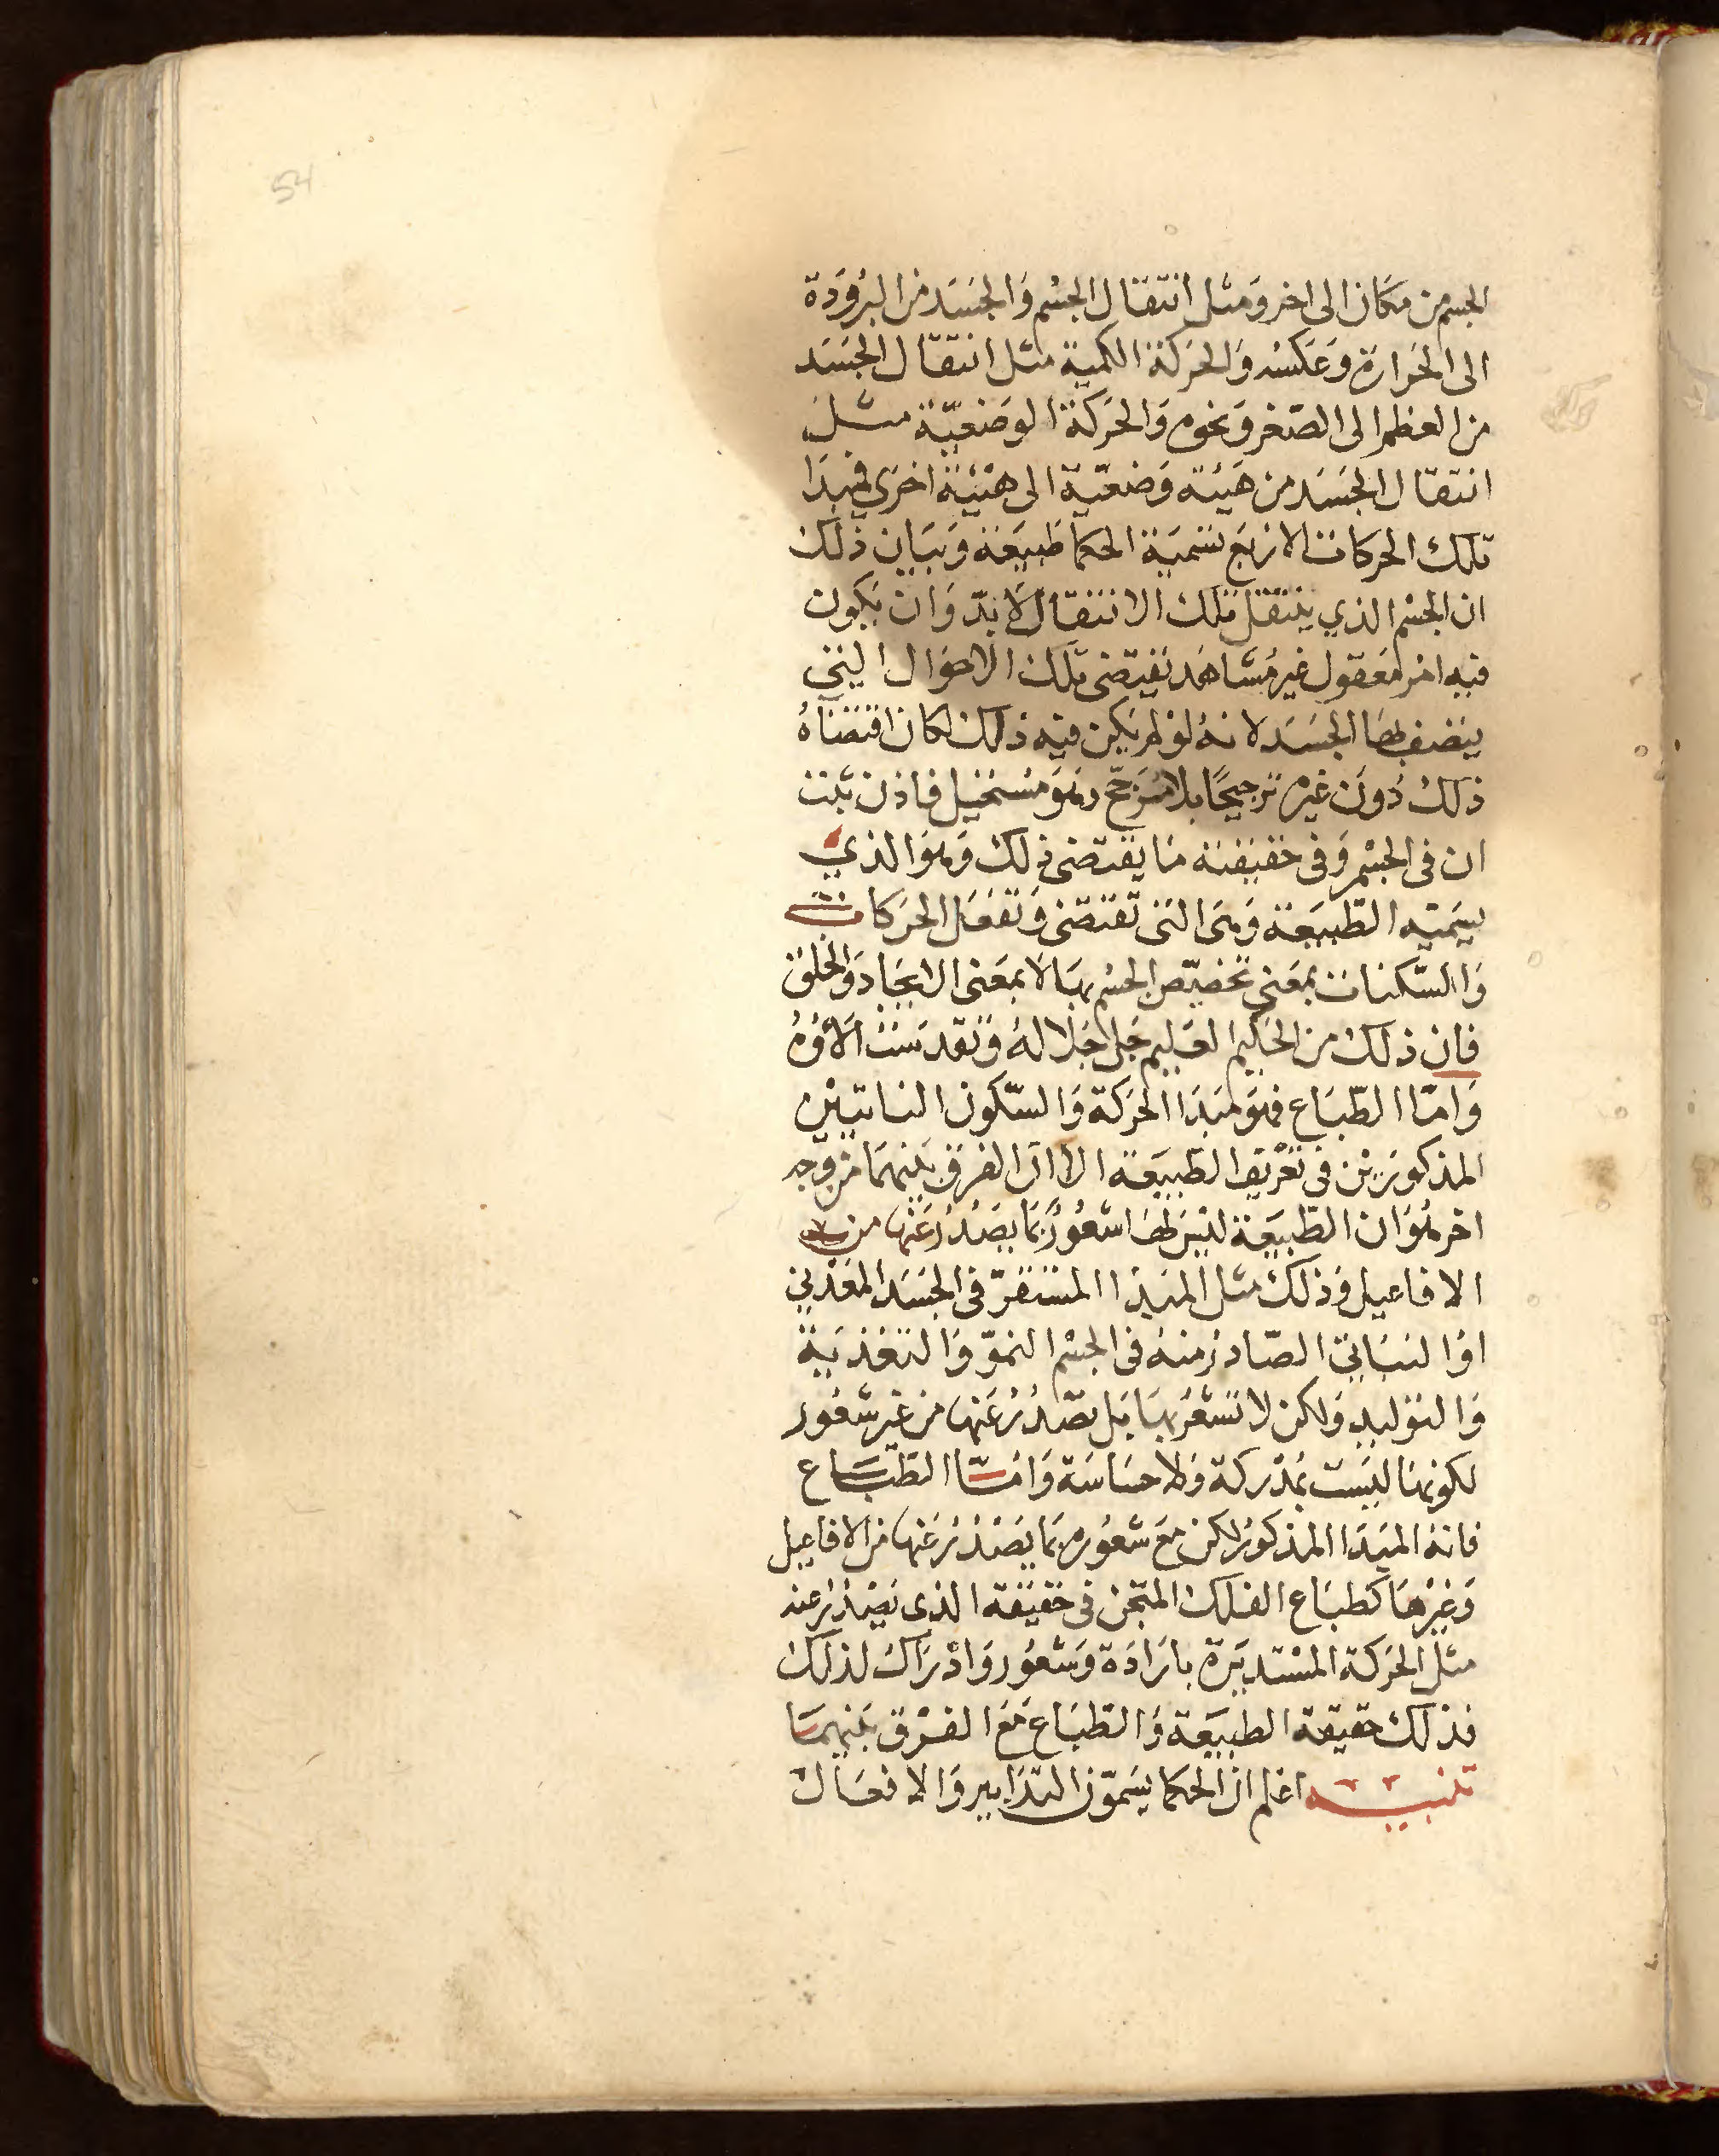 54
الجسم من مكان الى اخر ومثل انتقال الجسم والجسد من البرودة
الى الحرارة وعكسه والحركة الكمية مثل انتقال الجسد
من العظم الى الصغر ونحوه والحركة الوضعيّة مثل
انتقال الجسد من هيئة وضعيّة الى هيئة اخرى فمبدا
تلك الحركات الاربع تسميه الحكما طبيعة وبيان ذلك
ان الجسم الذي ينتقل تلك الانتقال لا بدّ وان يكون
فيه امر معقول غير مشاهد يقتضى تلك الاحوال التي
يتصف بها الجسد لانه لو لم يكن فيه ذلك لكان اقتضاه
ذلك دون غيره ترجيحًا بلا مرجّح وهو مستحيل فاذن تثبت
ان فى الجسم وفى حقيقته ما يقتضى ذلك وهو الذي
يسميه الطبيعة وهى التى تقتضى وتفعل الحركات
والسّكنات بمعنى تخصيص الجسم بها لا بمعنى الايجاد والخلق
فان ذلك من الحكيم العليم جل جلاله وتقدست الاؤه
وامّا الطّباع فهو مبدا الحركة والسّكون الذاتيين
المذكورين فى تعريف الطّبيعة الا ان الفرق بينهما من وجه
اخر هو ان الطّبيعة ليس لها شعور بما يصدر عنها من
الافاعيل وذلك مثل المبدا المستقرّ فى الجسد المعدني
او النباتى الصّادر منه فى الجسم النموّ والتغذية
والتوليد ولكن لا تشعر بها بل تصدر عنها من غير شعور
لكونها ليست بمدركة ولا حساسة وامّا الطّباع
فانه المبدا المذكور لكن مع شعوره بما يصدر عنها من الافاعيل
وغيرها كطباع الفلك فى حقيقة الذى يصدر عنه
مثل الحركة المستديرة بارادة وشعور وادراك لذلك
فذلك حقيقة الطبيعة والطباع مع الفرق بينهما
تنبيه اعلم ان الحكما يسمّون التدابير والافعال